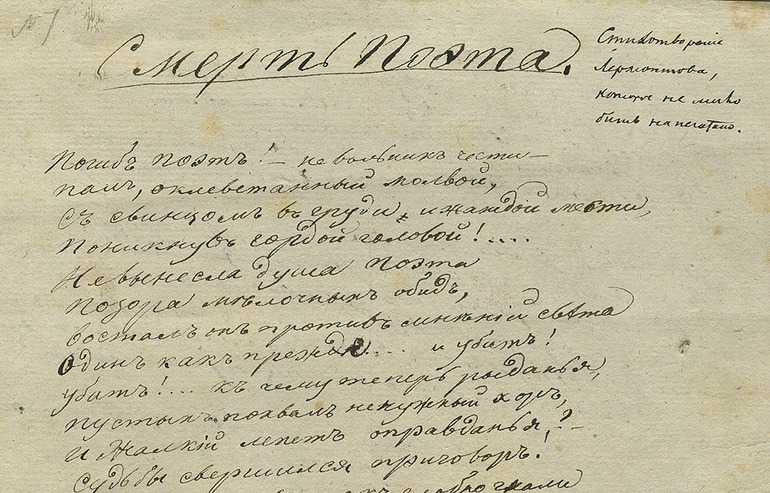 № 1
Смерть Поэта.
Стихотворенiе
Лермонтова,
которое не могло
быть напечатано.
Погибъ поэтъ! – невольникъ чести –
палъ, оклеветанный молвой,
съ свинцомъ въ груди, и жаждой мести,
поникнувъ гордой головой!....
Не вынесла душа поэта
позора мѣлочныхъ обидъ,
возсталъ онъ противъ мнѣнiй свѣта
Одинъ какъ прежде.... и убитъ!
убитъ!.... къ чему теперь рыданья,
пустыхъ похвалъ ненужный хоръ,
и жалкiй лепетъ оправданья,? –
судьбы свершился приговоръ!